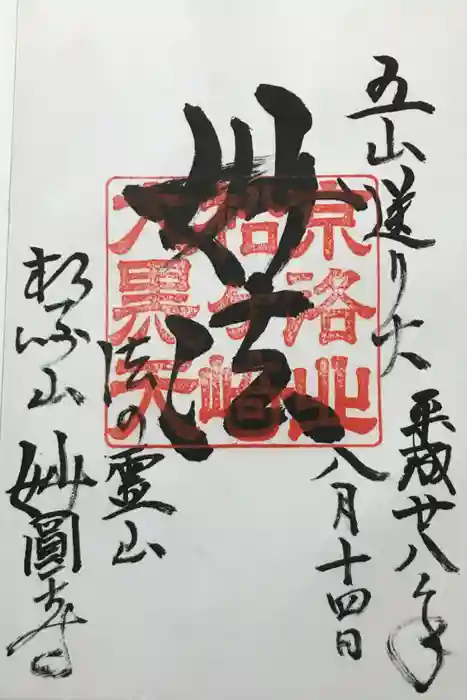 五山送り火
平成廿八年
八月十四日
妙法
京洛北
松ヶ崎
大黒天
法の霊山
松ヶ崎山
妙圓寺